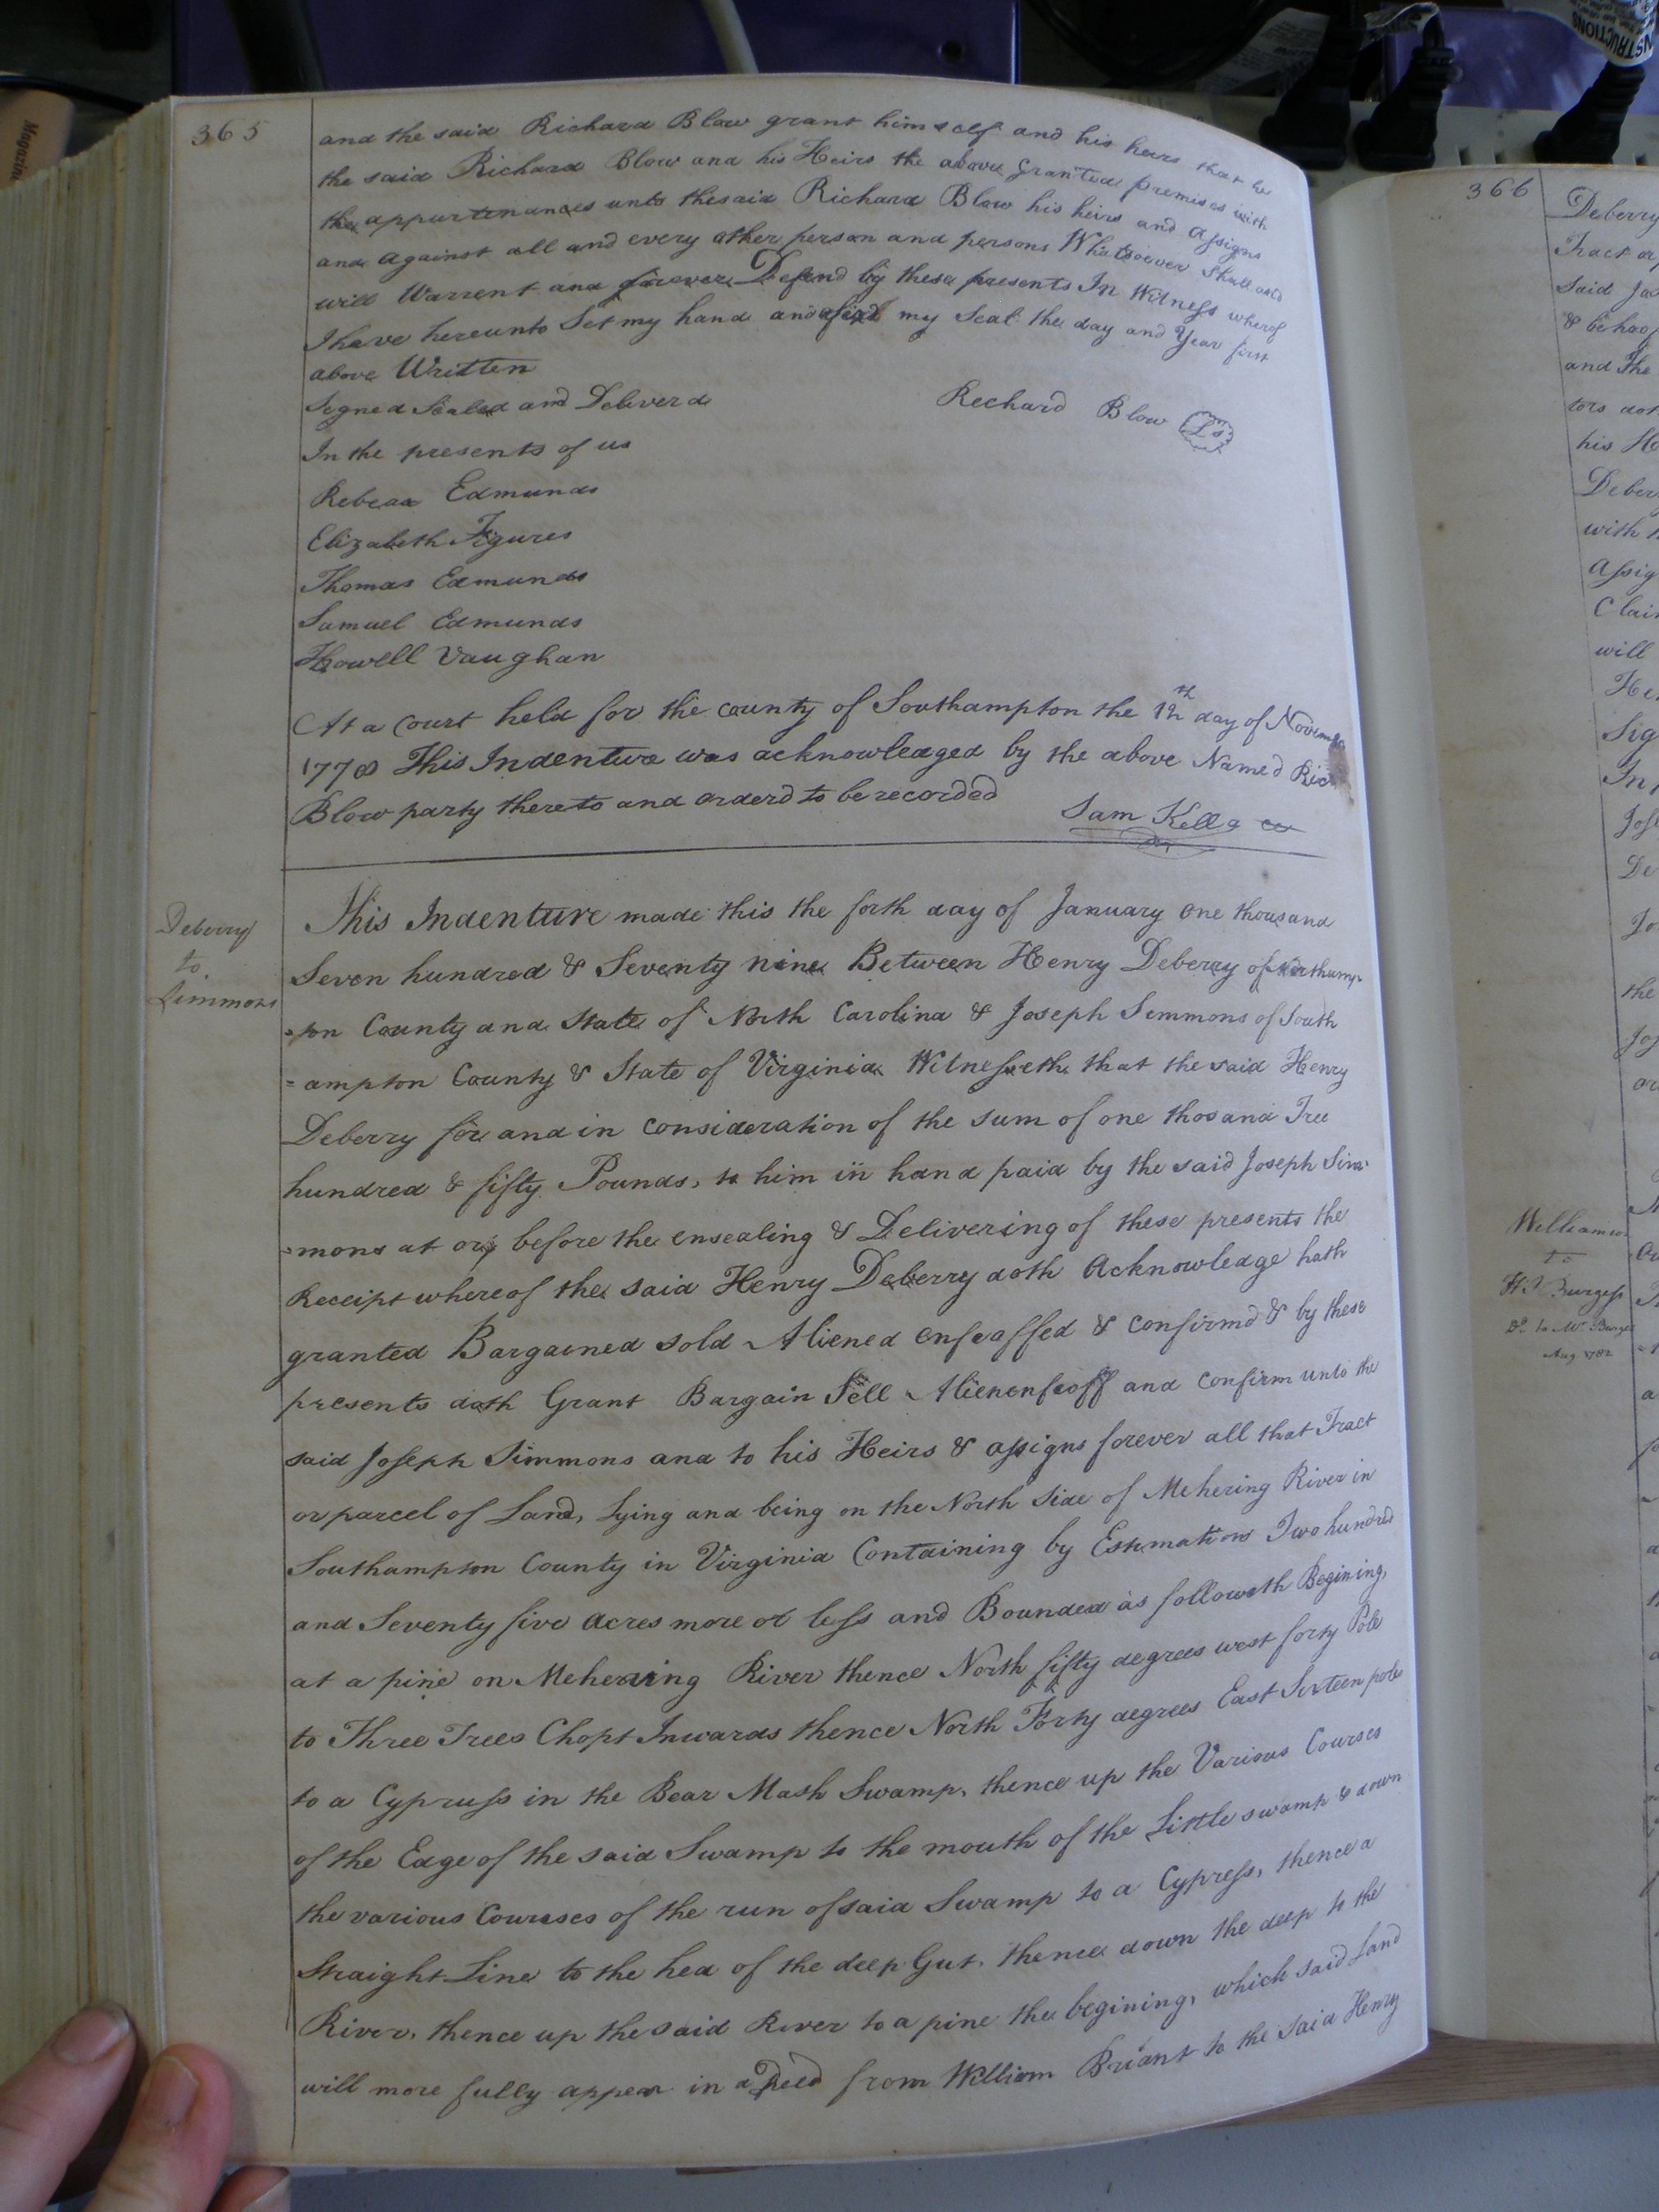 365
and the said Richard Blow grant himself and his heirs that he
the said Richard Blow and his Heirs the above granted premises with
the appurtenances unto the said Richard Blow his heirs and assigns
and against all and every other person and persons Whatsoever Shall and
will Warrent and forever Defend by these presents In Witness wherof
I have hereunto Set my hand and my Seal the day and Year first
above Written
Signed Sealed and Deliverd
Rechard Blow Ls
In the presents of us
Rebecca Edmunds
Elizabeth Figures
Thomas Edmunds
Samuel Edmunds
Howell Vaughan
At a Court held for the county of Southampton the 12th day of November
1778 This Indenture was acknowledged by the above Named Rich
Blow party thereto and orderd to be recorded
Sam Kello cc
Deberry
to
Simmons
This Indenture made this the forth day of January one thousand
Seven hundred & Seventy nine Between Henry Deberry of Northamp-
=ton County and State of North Carolina & Joseph Simmons of South
=ampton County & State of Virginia Witnesseth that the said Henry
Deberry for and in consideration of the sum of one thosand Tree
hundred & fifty Pounds, to him in hand paid by the said Joseph Sim-
=mons at or before the ensealing & Delivering of these presents the
Receipt whereof the said Henry Deberry doth Acknowledge hath
granted Bargained sold Aliened enfeaffed & confirmd & by these
presents doth Grant Bargain Sell Alienenfeoff and confirm unto the
said Joseph Simmons and to his Heirs & assigns forever all that Tract
or parcel of Land, lying and being on the North Side of Mehering River in
Southampton County in Virginia Containing by Estimation Two hundred
and Seventy five acres more or less and Bounded as followeth Begining,
at a pine on Mehering River thence North fifty degrees west forty Pole
to Three Trees Chopt Inwards thence North Forty degrees East Sixteen pole
to a Cypruss in the Bear Mash Swamp, thence up the Various Courses
of the Edge of the said Swamp to the mouth of the Little swamp & down
the various Courses of the run of said Swamp to a Cypress, thence a
Straight Line to the hed of the deep Gut, thence down the deep to the
River, thence up the said River to a pine the begining, which said Land
will more fully appear in a Deed from William Briant to the said Henry
366
Deberry
Tract or
Said
and The
his He
with
Assig
Clai
will
Sig
the
Williamson
to
H J Burgess
Do to Mr Burges
Aug 1782